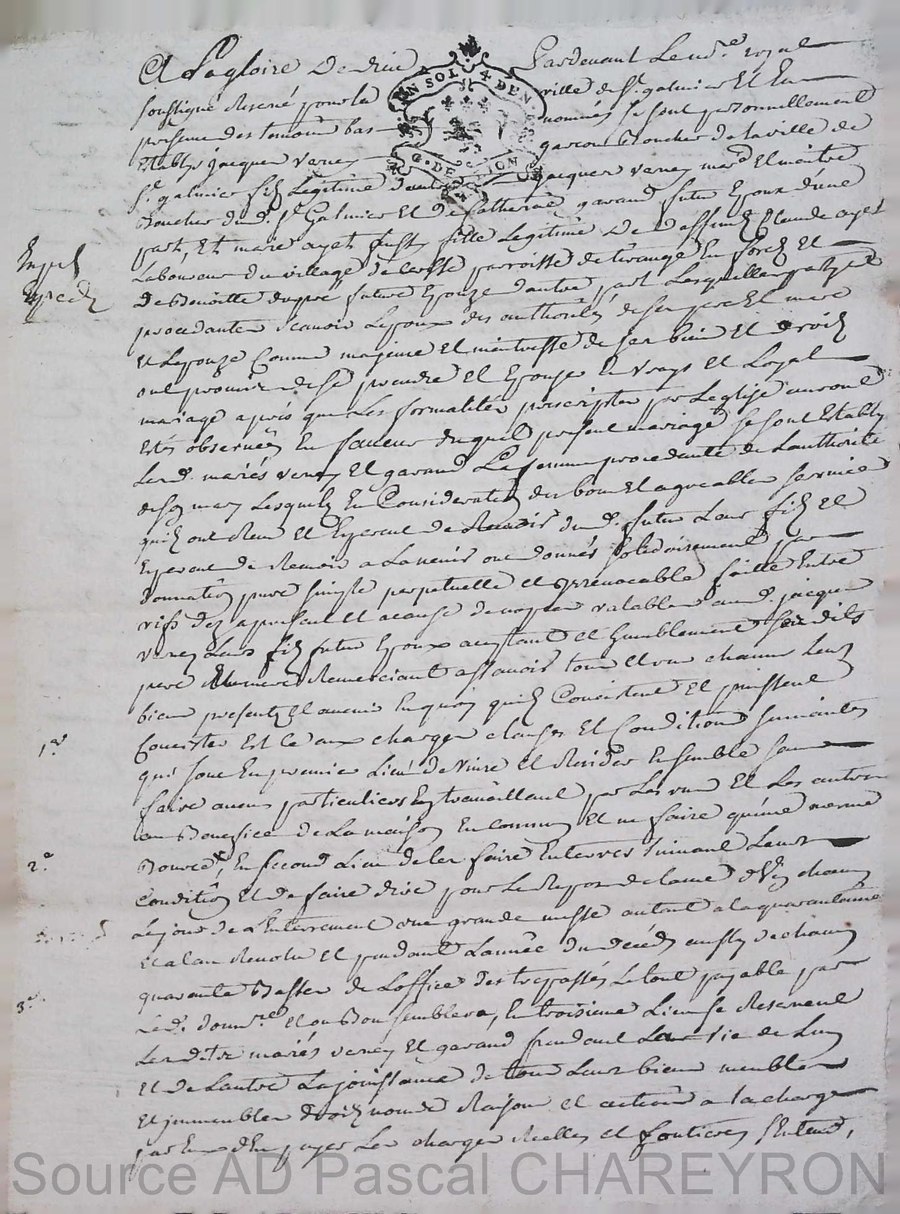 A La gloire De dieu Pardevant Le no.re royal
soussigné Reservé pour la ville de St. galmier Et En
presence des temoins bas nommés se sont personnellement
Etablys jacques verney garcon Boucher de la ville de
St. galmier fils Legitime de jacques verney mard. Et maitre
Boucher dud. St Galmier Et de Catherine garand futur Epoux d'une
part, Et marie ayet fille Legitime De deffunt Claude ayet
Laboureur du village de parroisse de virange En forez Et
De Benoitte dupré future Epouze d'autre part Lesquelles partyes
procedantes scavoir L'epoux des authorités de ses pere Et mere
Et L'epouze Comme majeure Et maitresse de ses bien Et droits
ont promis de se prendre Et Epouser En vrays Et Loyal
mariage aprés que Les formalités prescriptes par L'eglise auront
Etés observées En faveur duquel present mariage se sont Etablys
Lesd. mariés verney Et garand La femme procedante de L'authorité
de son mary Lesquels En Consideration des bons Et agreables services
qu'ils ont Receu Et Esperent de Recevoir dud. futur Leur fils Et
Esperent de Recevoir a L'avenir ont donnés solidairement par
donnation pure simple perpetuelle et irrevocable faitte Entre
vifs des a present et a cause de nopces valable aud. jacques
verney Leurs fils futur Epoux acceptant et humblement sesdits
pere Et mere Remerciant assavoir tous Et un chacuns Leurs
bien presents Et avenir En quoy qu'ils Consistent Et puissent
Consister Et ce aux charges clauses Et Conditions suivantes
1.er
qui sont En premier Lieu de vivre Et Resider Ensemble sans
faire aucuns particuliers En travaillant par Les uns Et Les autres
au Benefice de La maison En commun Et ne faire qu'une meme
2.e
Bource, En second Lieu de les faire Enterrer suivant Leurs
Condition Et de faire dire pour Le Repos de L'ame d'un chacun
Le jour de L'enterrement une grande messe autant a la quarantaine
Et a L'an Revolu Et pendant L'année du décéds aussy de chacun
quarante Basses de L'office des trepassés Le tout payable par
3.e
Led. donnre. Et ou Bon semblera, En troisieme Lieu se Reservent
Lesdits mariés verney Et garand pendant La vie de L'un
Et de L'autre La jouissance de tous Leurs biens meubles
Et immeubles droits noms Raisons et actions a la charge
par Eux d'En payer Les charges Reelles et foncieres
Source AD Pascal CHAREYRON